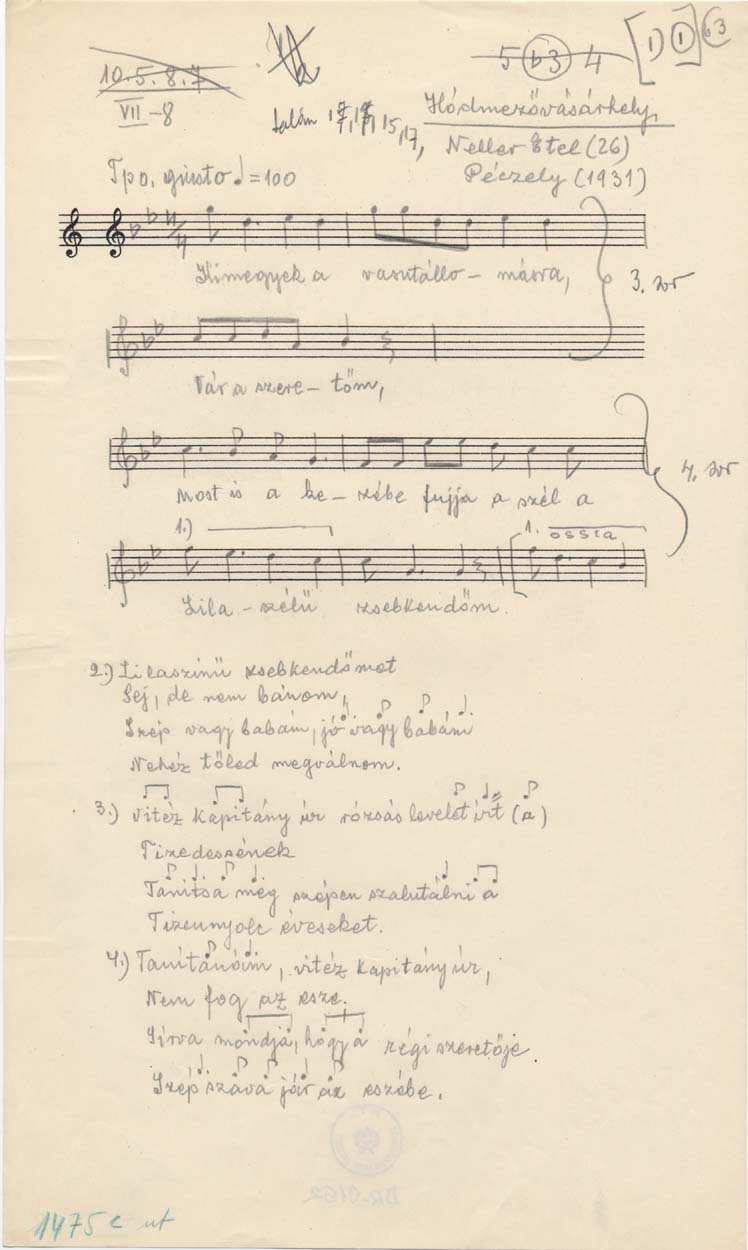 10.5.8.7
VII-8
5 b3 4
1) 1 b3
Hódmezővásárhely,
Neller Etel (26)
Péczely (1931)
Tpo. giusto ♩=100
4/4
Kimegyek a vasutállo - másra,
3. sor
Vár a szere - tőm,
Most is a ke - zébe fujja a szél a
4. sor
1.)
1. ossia
Lila - szélű zsebkendőm.
2.) Lilaszinű zsebkendőmet
Sej, de nem bánom,
Szép vagy babám, jó vagy babám
Nehéz tőled megválnom.
3.) Vitéz kapitány úr rózsás levelet írt (a)
Tizedessének
Tanítsa meg szépen szalutálni a
Tizennyolc éveseket.
4.) Tanítanóim, vitéz kapitány úr,
Nem fog az esze.
Sírva mondja, hogy a régi szeretője
Szép szava jár az eszébe.
1475 c ut